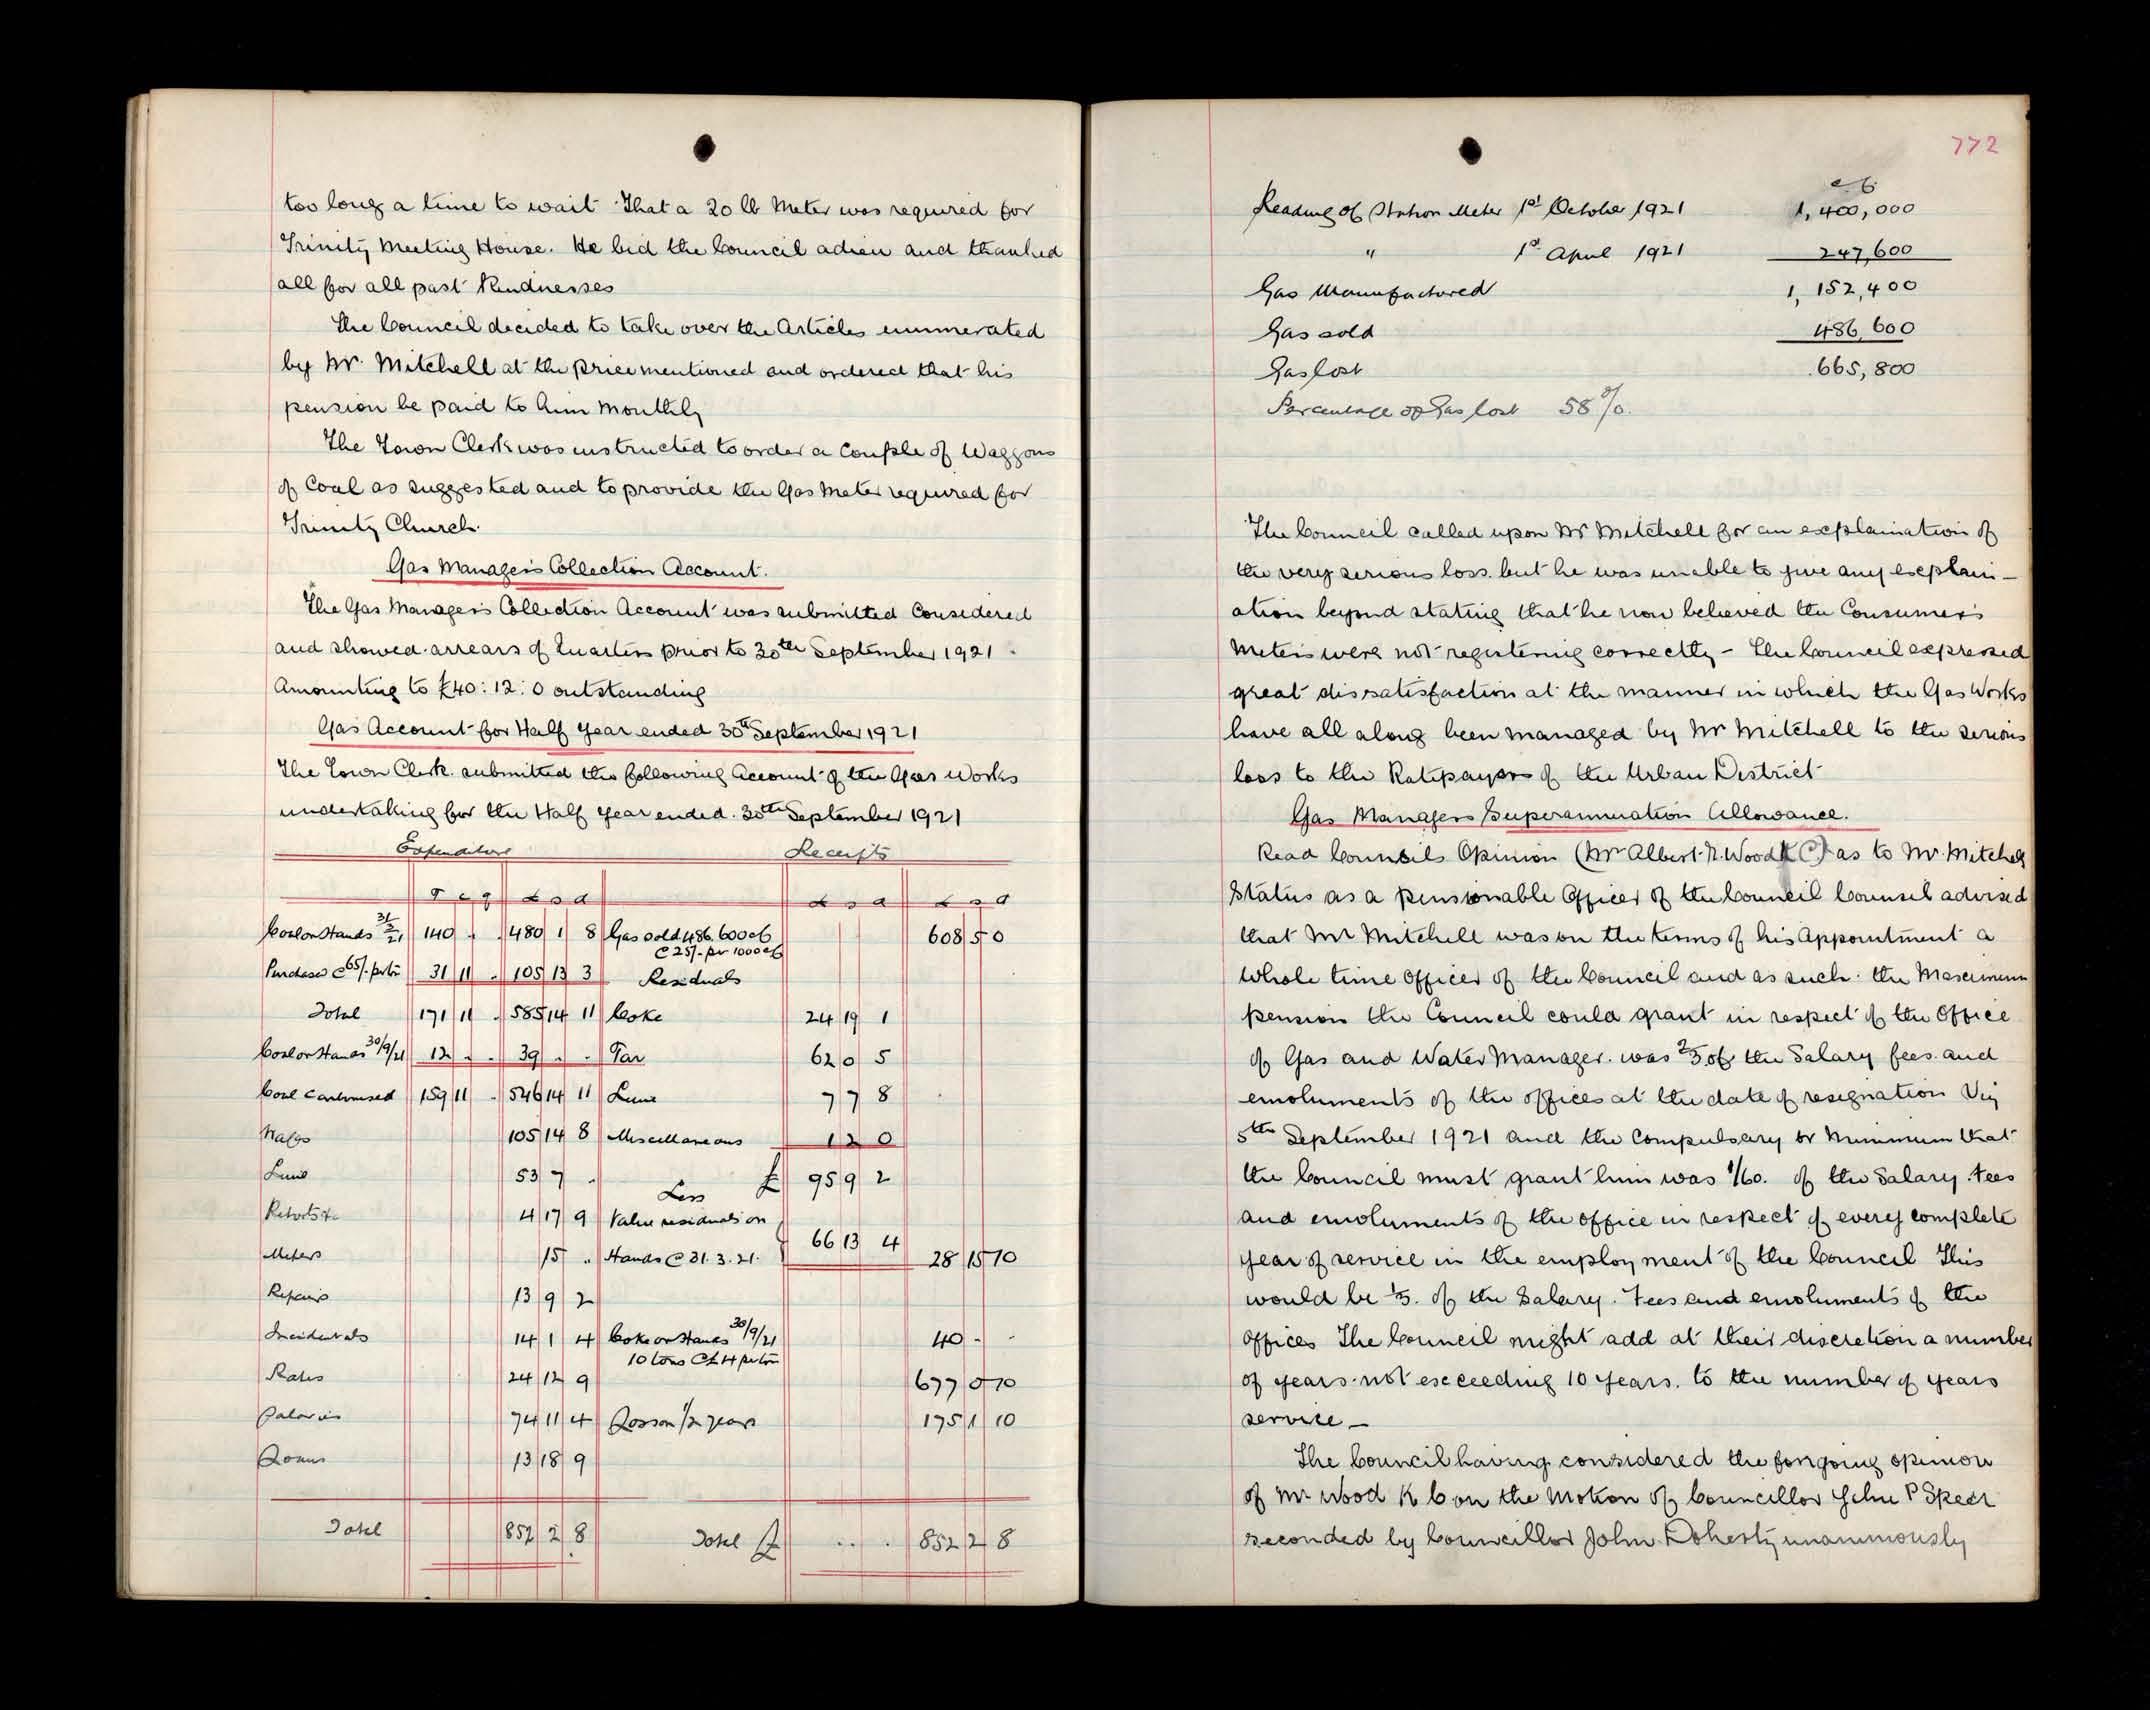 too long a time to wait That a 20 lb Meter was required for
Trinity Meeting House. He bid the Council adieu and thanked
all for all past Kindnesses
The Council decided to take over the Articles enumerated
by Mr. Mitchell at the price mentioned and ordered that his
pension be paid to him monthly
The Town Clerk was instructed to order a Couple of Waggons
of Coal as suggested and to provide the Gas Meter required for
Trinity Church.
Gas Manager's Collection Account.
The Gas Manager's Collection Account was submitted Considered
and showed arrears of Quarters prior to 30th September 1921 -
Amounting to £40:12:0 outstanding
Gas Account for Half Year ended 30th September 1921
The Town Clerk submitted the following Account of the Gas Works
undertaking for the Half Year ended 30th September 1921
Expenditure Receipts
T c q £ s d £ s d £ s d
Coal on Hands 31/3/21 140 . . 480 1 8 Gas sold 486,600 cb 608 5 0
@ 25/- per 1000 cb
Purchases @ 65/- per ton 31 11 . 105 13 3 Residuals
Total 171 11 . 585 14 11 Coke 24 19 1
Coal on Hands 30/9/21 12 . . 39 . . Tar 62 0 5
Coal Carbonised 159 11 . 546 14 11 Lime 7 7 8
Wages 105 14 8 Miscellaneous 1 2 0
Lime 53 7 . £ 95 9 2
Less
Retorts &c 4 17 9 Value residuals on
Meters 15 . Hands @ 31.3.21. 66 13 4 28 15 10
Repairs 13 9 2
Incidentals 14 1 4 Coke on Hands 30/9/21 40 - -
10 tons @ £4 per ton
Rates 24 12 9 677 0 10
Salaries 74 11 4 Loss on 1/2 year 175 1 10
Loans 13 18 9
Total 852 2 8 Total £ . . . 852 2 8
772
c b
Reading of Station Meter 1st October 1921 1,400,000
" 1st April 1921 247,600
Gas Manufactured 1,152,400
Gas sold 486,600
Gas lost 665,800
Percentage of Gas lost 58%.
The Council called upon Mr Mitchell for an explaination of
the very serious loss but he was unable to give any explain-
ation beyond stating that he now believed the Consumer's
Meters were not registering correctly - The Council expressed
great dissatisfaction at the manner in which the Gas Works
have all along been managed by Mr Mitchell to the serious
loss to the Ratepayers of the Urban District
Gas Managers Superannuation Allowance.
Read Counsils Opinion (Mr Albert. L. Wood K C) as to Mr. Mitchell
Status as a pensionable Officer of the Council Counsel advised
that Mr Mitchell was on the terms of his Appointment a
whole time Officer of the Council and as such the Maximum
pension the Council could grant in respect of the Office
of Gas and Water Manager was 2/3 of the Salary fees and
emoluments of the offices at the date of resignation Viz
5th September 1921 and the Compulsary or Minimum that
the Council must grant him was 1/60. of the Salary. Fees
and emoluments of the office in respect of every complete
year of service in the employment of the Council This
would be 1/3. of the Salary. Fees and emoluments of the
offices The Council might add at their discretion a number
of years not exceeding 10 years. to the number of years
service -
The Council having considered the forgoing opinion
of Mr Wood K C on the Motion of Councillor John P Speer
seconded by Councillor John Doherty unanimously